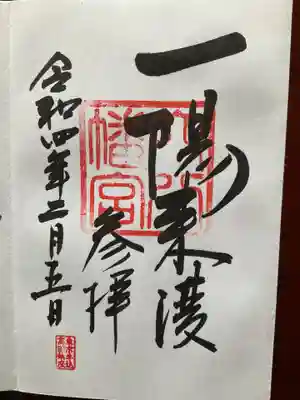 一陽来復
参拝
令和四年二月五日
穴八幡宮